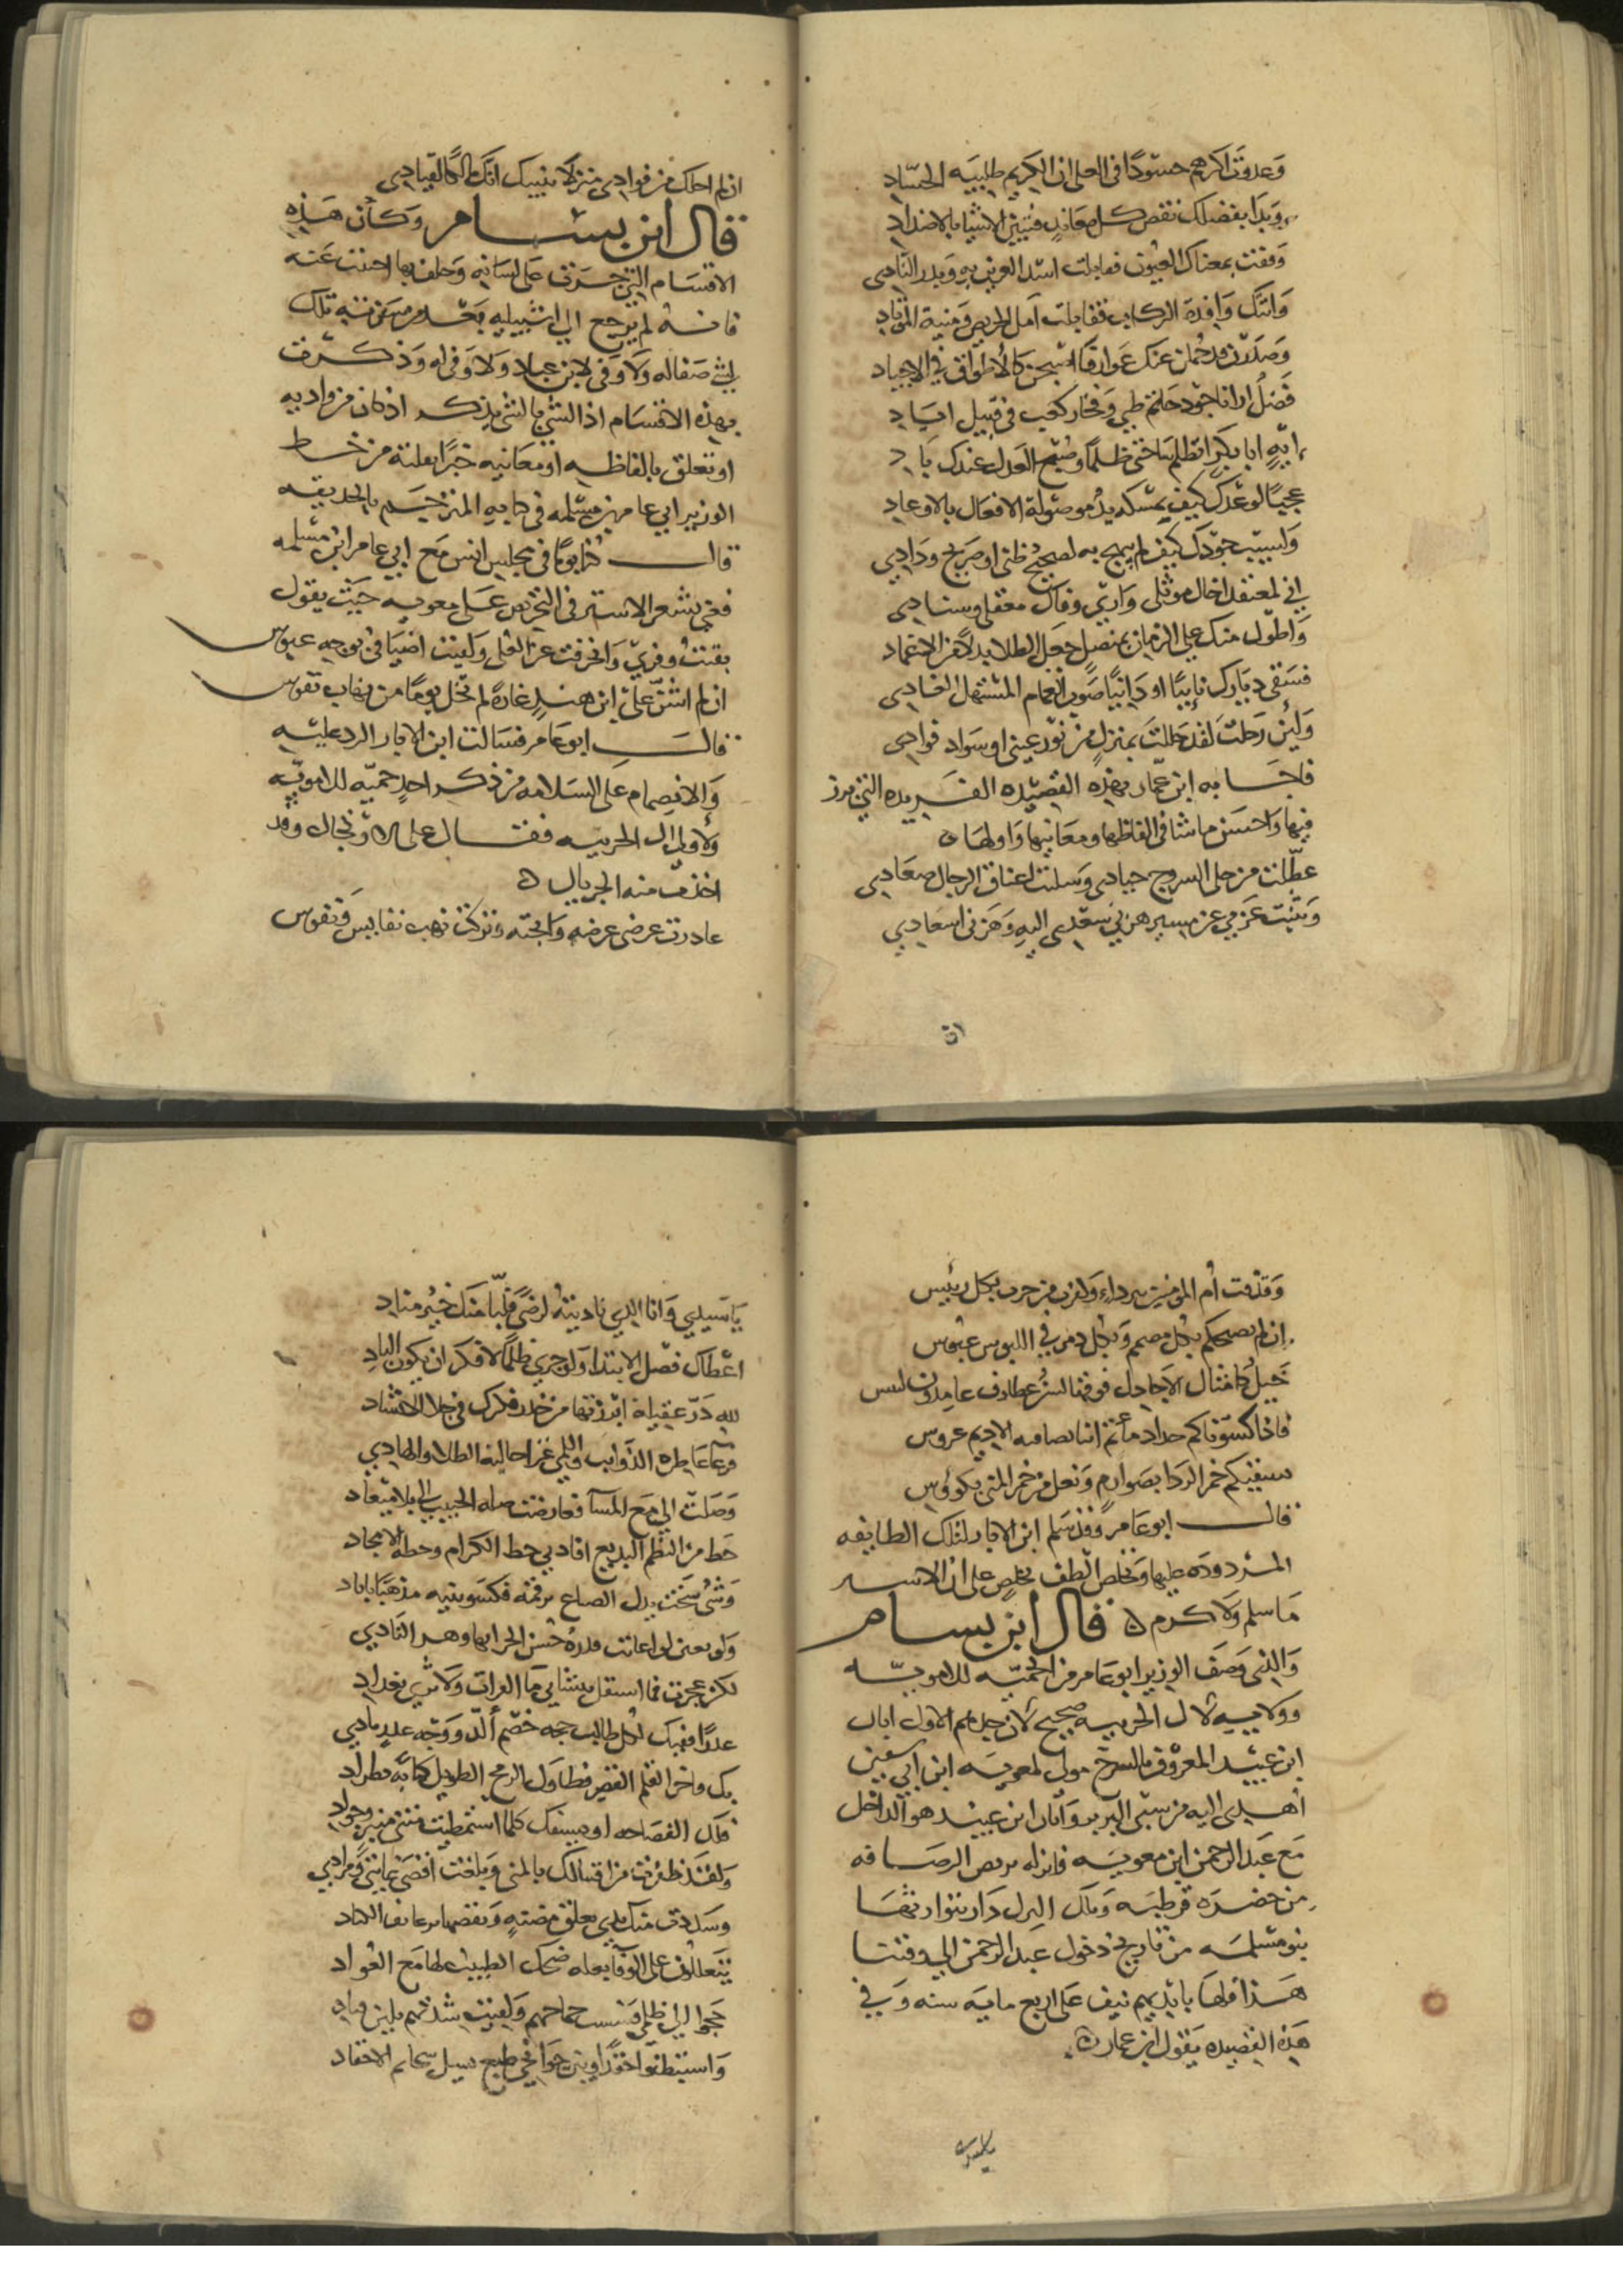 وعدوت اكرمهم حسودًا في العلى ان الكريم طليبه الحسّاد
وبدا بفضلك نقص كل معاند فتبين الاشيا بالاضداد
وقفت بمعناك العيون فقابلت اسد العرين به وبدر النادي
واتتك وافدة الركاب فقابلت امل الحريص ومنية المرتاد
وصدرن قد حملن عنك عوارفا اسبحن كالاطواق في الاجياد
فضل ارانا جود حاتم طي وفخار كعب في قبيل اياد
ايهٍ ابا بكر اتظلم ساحتي ظلمًا وصبح العدل عندك باد
عجبًا لوعدك كيف يمسكه يدٌ موصولة الافعال بالاوعاد
ولسيب جودك كيف لم يسمح به لصحيح ظني او صريح ودادي
اني لمعتقد اخال موثلي وارى وفاك معقلي وسنادي
واطول منك على الزمان بمنصل جعل الطلا بدلًا من الاغماد
فسقى ديارك نايبًا او دانيًا صوب الغمام المستهل الغادي
ولين رحلت لقد حللت بمنزل من نور عيني او سواد فوادي
فاجابه ابن عمار بهذه القصيده الفريده التي برز
فيها واحسن ما شا في الفاظها ومعانيها واولها
عطلت من حلي السروج جيادي وسلبت اعناق الرجال صعادي
وثنيت عزمي عن مسير هزني سعدي اليه وهزني اسعادي
ان
ان لم احلك من فوادي منزلا ينبيك انك مالكًا لقيادي
قال ابن بسام وكأن هذه
الاقسام التي جرت على لسانه وحلف بها احنث عنه
فانه لم يرجع الى اشبيليه بعد مرسته تلك
لشي صفاله ولا وفى لابن عباد ولا وفى له وذكرت
بهذه الاقسام اذ الشي بالشي يذكر اذ كان من واديه
او تعلق بالفاظه او معانيه خبرًا نقلته من خط
الوزير ابي عامر بن مسلمه في كتابه المترجم بالحديقه
قال كنا يومًا في مجلس انس مع ابي عامر ابن مسلمه
فغني بشعر الاستر في التحريض على معويه حيث يقول
بقيت وفري وانحرفت عن العلى ولقيت اضيافي بوجه عبوس
ان لم اشن على ابن هند غارةً لم تخل يومًا من نهاب نفوس
قال ابو عامر فسالت ابن الابار الرد عليه
والانضمام على السلامه من ذكر احدٍ حميّه للامويّه
ولاولى ال الحربيه فقال على وارتجال وقد
اخذت منه الجريال
غادرت عرضي عرضه وابحته وتركت نهب نفايس ونفوس
وقذفت أم المومنين بردا ولقرن من حرب بكل رئيس
ان لم نصبحكم بكل مصمم وبكل دمر في اللبوس عبوس
خيل كامثال الاجادل فوقها لسر عطارف عامدون لبس
فاذا كسوناكم حداد مأتم اتنا بصافيه الاديم عروس
سنسقيكم خمر الردا بصوارم ونعل من خمر المنى بكووس
قال ابو عامر وقد سلم ابن الابار لتلك الطايفه
المردوده عليها وتخلص الطف تخلص على ان الاستر
ما سلم ولا كرم قال ابن بسام
والذي وصف الوزير ابو عامر من الحميّه للامويّه
وولاييه لال الحربيه صحيح لان جدهم الاول ابان
ابن عبيد المعروف بالسرح مولى لمعويه ابن ابي سفين
أهدي اليه من سبي البربر وابان ابن عبيد هو الداخل
مع عبد الرحمن ابن معويه فانزله بربض الرصافه
من حضرة قرطبه وتلك البرل دار توارثتها
بنو مسلمه من تاريخ دخول عبد الرحمن الى وقتنا
هذا فلها بايديهم نيف على اربع مايه سنه وفي
هذه القصيده يقول ابن عمار
يا سيدي وانا الذي ناديته لرضى فلبا منك خير مناد
اعطاك فضل الابتدا ولو جرى ظلمًا لافكر ان يكون الباد
لله درّ عقيلة ابرزتها من خدر فكرك في جلا الانشاد
فرعا عاطره الذوايب واللمى غرا حاليه الطلا والهادي
وصلت الي مع المسآ فعارضت صله الحبيب الي بلا ميعاد
خط من النظم البديع افادني حظ الكرام وخطه الامجاد
وشي سخت يدك الصناع برقمه فكسوتنيه مذهبًا باباد
ولو بعض لو اعانت قدرةٌ حسن الحرابها وهر النادي
لكن عجزت فما استقل بنشايي ما الفرات ولا ثرى بغداد
عذرًا ففيك لكل طالب حجه خصم ألدّ ووجه عذر بادي
بك فاخر القلم القصير فطاول الرمح الطويل كتابه بطراد
فلك الفصاحه او بسيفك كلما استمطيت متني منبر وجواد
ولقد ظفرت من اقتبالك بالمنى وبلغت اقصى غايتي ومرادي
وسددت منك يدي بعلق مضنهٍ ونفضتها من عايف
يتعللون على الوفآ بعله ضحك الطبيب لها مع العواد
جمحوا الي ظلمي فسست جماحهم ولقيت شدتهم بلين قياد
واستبطنوا حقدًا وبين جوانحي طبع يسل سخايم الاحقاد